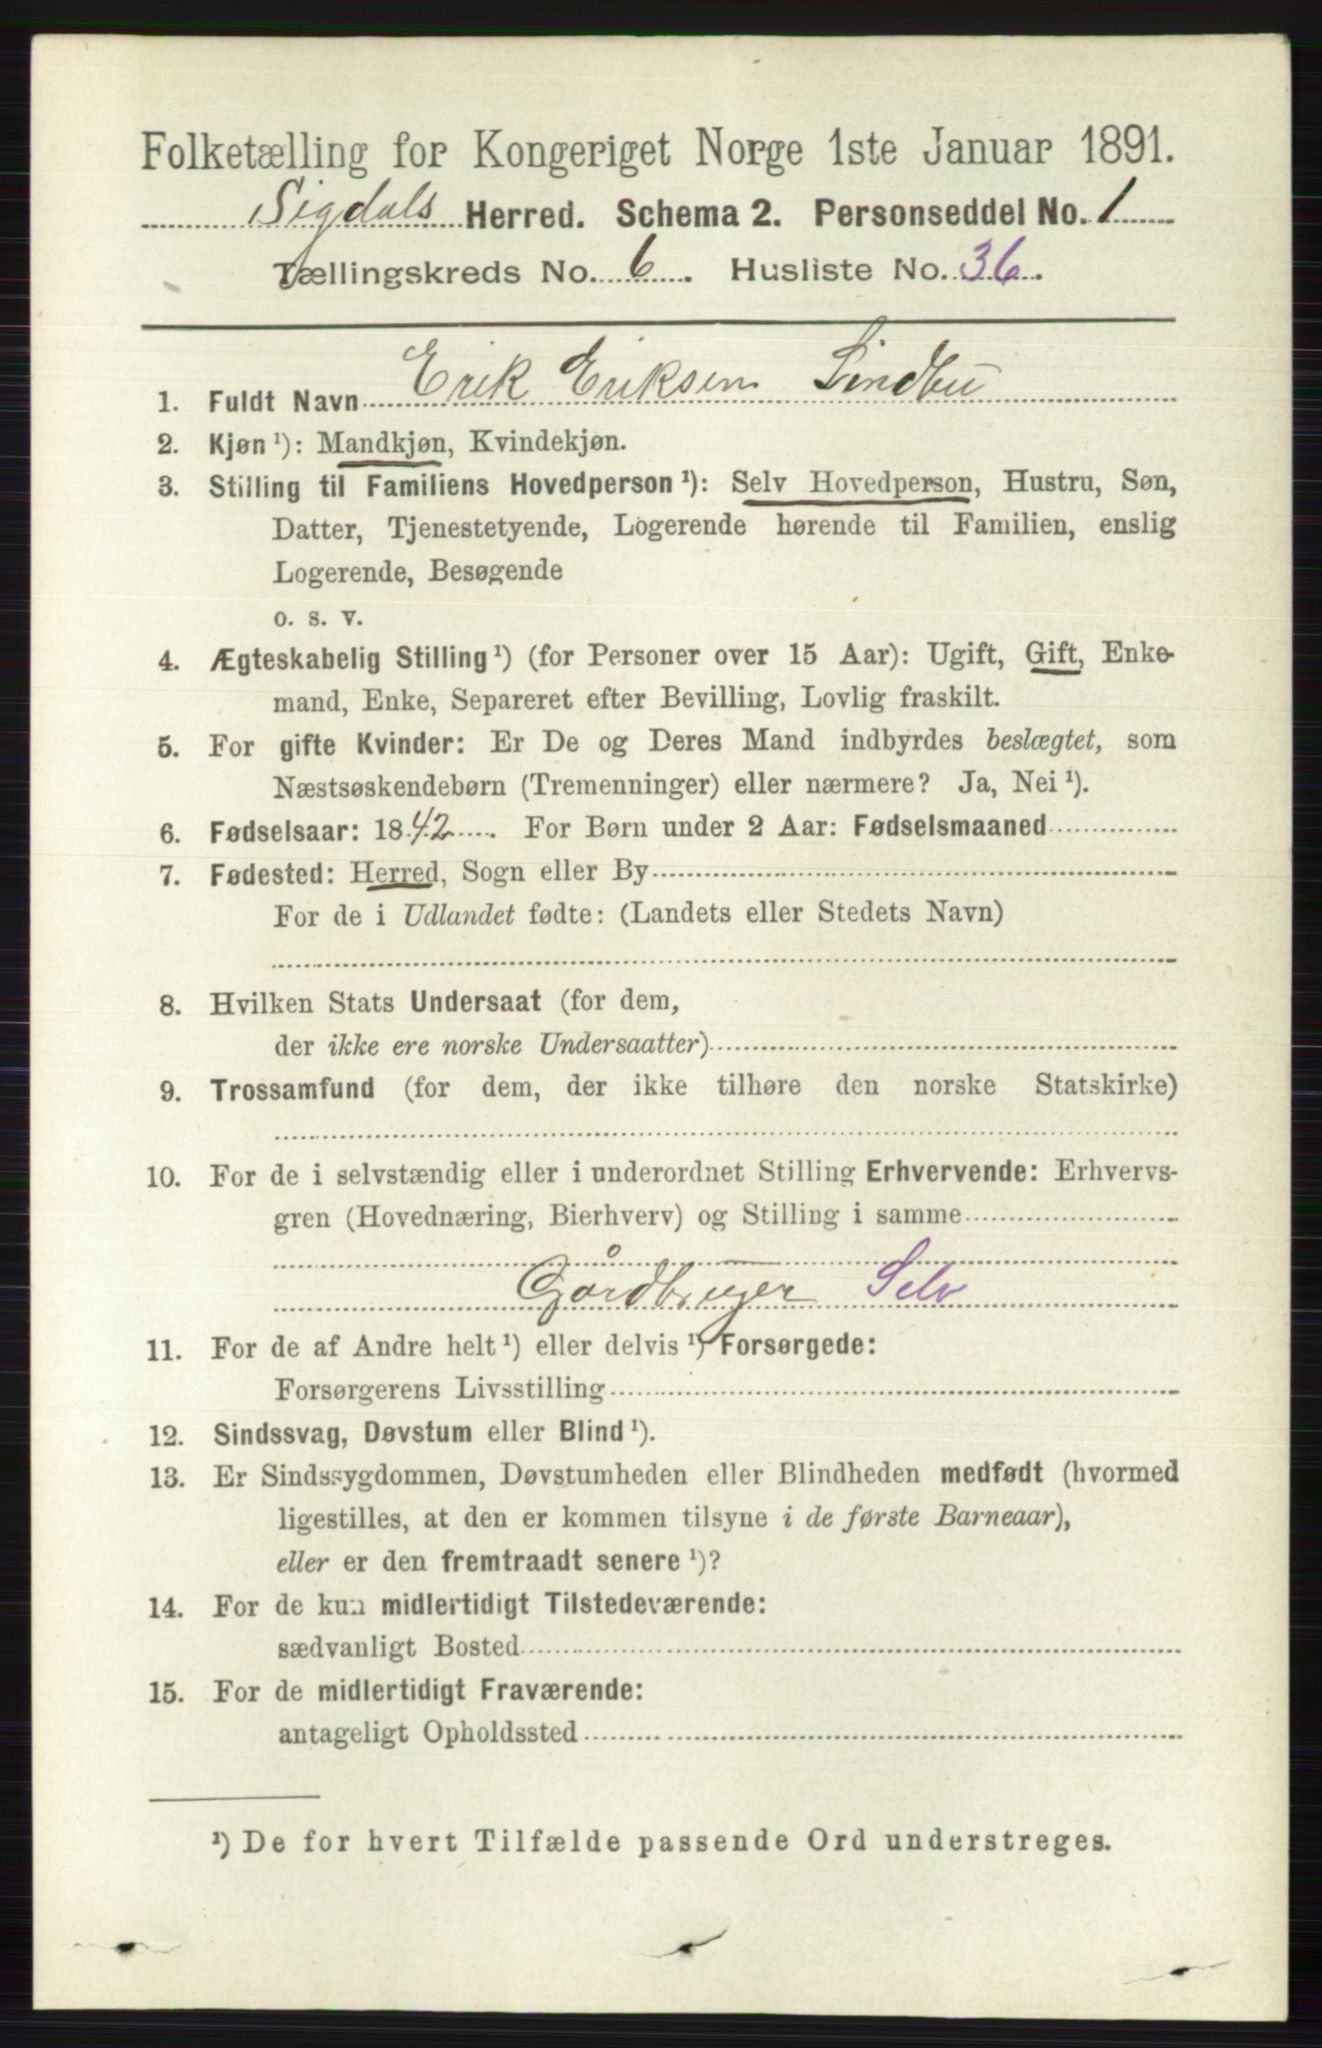 Folketælling for Kongeriget Norge 1ste Januar 1891.
Sigdals Herred. Schema 2. Personseddel No. 1
Tællingskreds No. 6. Husliste No. 36.
1. Fuldt Navn Erik Eriksen Lindbu
2. Kjøn ¹): Mandkjøn, Kvindekjøn.
3. Stilling til Familiens Hovedperson ¹): Selv Hovedperson, Hustru, Søn,
Datter, Tjenestetyende, Logerende hørende til Familien, enslig
Logerende, Besøgende
o. s. v.
4. Ægteskabelig Stilling ¹) (for Personer over 15 Aar): Ugift, Gift, Enke-
mand, Enke, Separeret efter Bevilling, Lovlig fraskilt.
5. For gifte Kvinder: Er De og Deres Mand indbyrdes beslægtet, som
Næstsøskendebørn (Tremenninger) eller nærmere? Ja, Nei ¹).
6. Fødselsaar: 1842. For Børn under 2 Aar: Fødselsmaaned
7. Fødested: Herred, Sogn eller By
For de i Udlandet fødte: (Landets eller Stedets Navn)
8. Hvilken Stats Undersaat (for dem,
der ikke ere norske Undersaatter)
9. Trossamfund (for dem, der ikke tilhøre den norske Statskirke)
10. For de i selvstændig eller i underordnet Stilling Erhvervende: Erhvervs-
gren (Hovednæring, Bierhverv) og Stilling i samme
Gårdbruger Selv
11. For de af Andre helt ¹) eller delvis ¹) Forsørgede:
Forsørgerens Livsstilling
12. Sindssvag, Døvstum eller Blind ¹).
13. Er Sindssygdommen, Døvstumheden eller Blindheden medfødt (hvormed
ligestilles, at den er kommen tilsyne i de første Barneaar),
eller er den fremtraadt senere ¹)?
14. For de kun midlertidigt Tilstedeværende:
sædvanligt Bosted
15. For de midlertidigt Fraværende:
antageligt Opholdssted
¹) De for hvert Tilfælde passende Ord understreges.